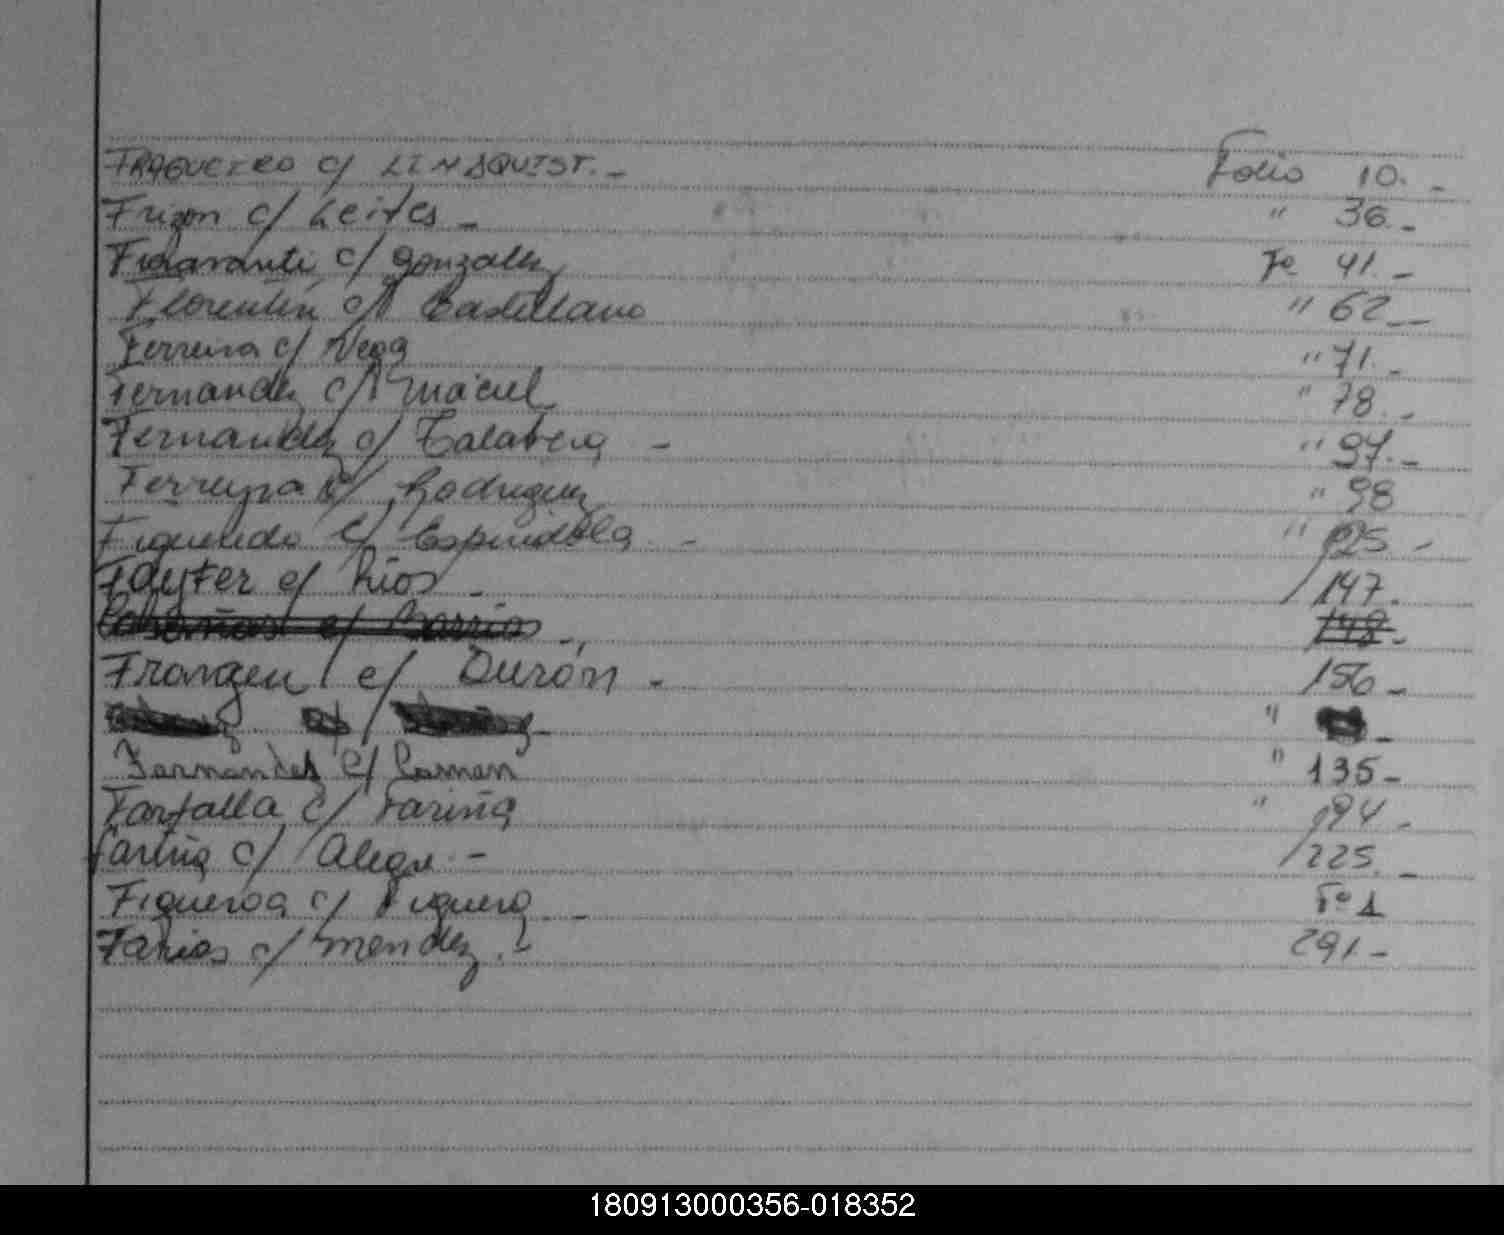 FRAGUEIRO c/ LINDQUIST. - Folio 10. -
Frizon c/ Leites - " 36. -
c/ Gonzalez Fº 41. -
Florentin c/ Castellano " 62 -
Ferreira c/ Vega " 71. -
Fernandez c/ Maciel " 78. -
Fernandez c/ Talavera - " 97. -
Ferreyra c/ Rodriguez " 98
Figueredo c/ Espindola - " 125 -
c/ Rios - 147. -
Cabañas c/ Barrios - 148. -
c/ Durón - 156 -
c/ - " -
Fernandez c/ " 135 -
Farfalla c/ Fariña " 194 -
Fariña c/ Alegre. - 225. -
Figueroa c/ Figuera - Fº 1
Farias c/ Mendez. - 291. -
180913000356-018352